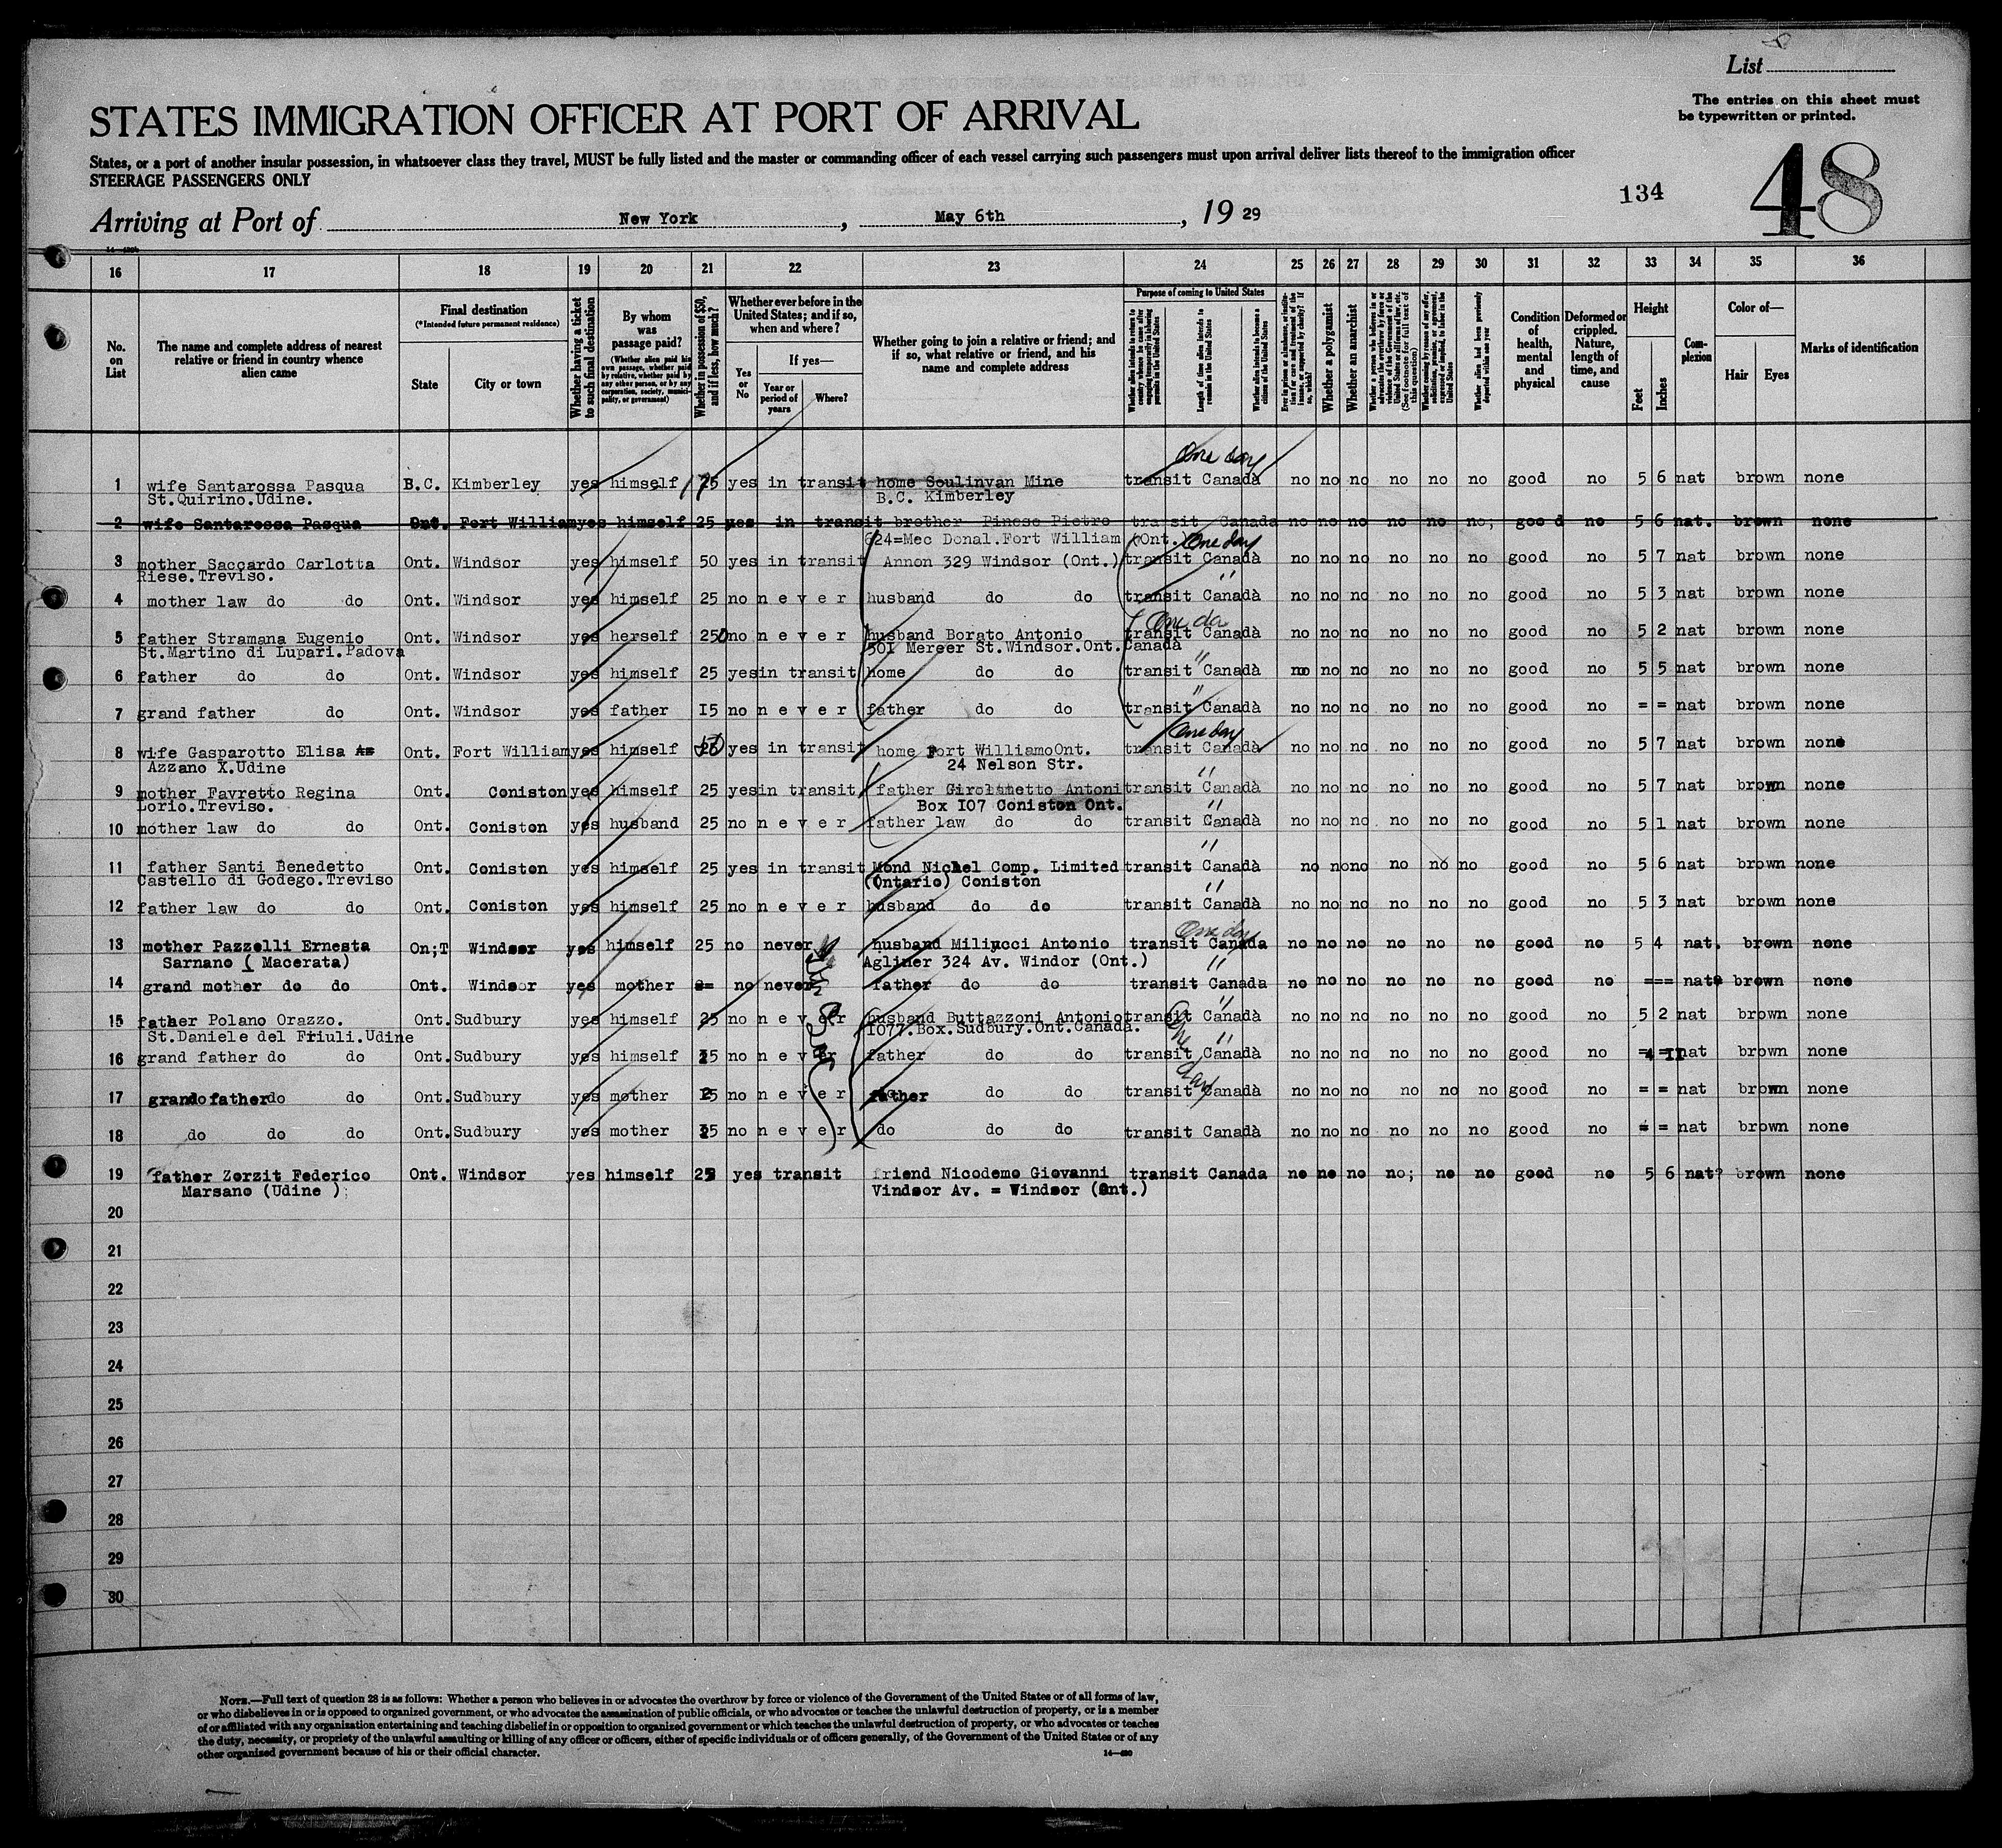 List
The entries on this sheet must
be typewritten or printed.
STATES IMMIGRATION OFFICER AT PORT OF ARRIVAL
States, or a port of another insular possession, in whatsoever class they travel, MUST be fully listed and the master or commanding officer of each vessel carrying such passengers must upon arrival deliver lists thereof to the immigration officer
STEERAGE PASSENGERS ONLY
134
48
Arriving at Port of New York, May 6th, 19 29
16 17 18 19 20 21 22 23 24 25 26 27 28 29 30 31 32 33 34 35 36
No. on List
The name and complete address of nearest relative or friend in country whence alien came
Final destination
(*Intended future permanent residence)
State
City or town
Whether having a ticket to such final destination
By whom was passage paid?
(Whether alien paid his own passage, whether paid by relative, whether paid by any other person, or by any corporation, society, municipality, or government)
Whether in possession of $50, and if less, how much?
Whether ever before in the United States; and if so, when and where?
Yes or No
If yes—
Year or period of years
Where?
Whether going to join a relative or friend; and if so, what relative or friend, and his name and complete address
Purpose of coming to United States
Length of time alien intends to remain in the United States
Whether alien intends to become a citizen of the United States
Whether a polygamist
Whether an anarchist
Condition of health, mental and physical
Deformed or crippled. Nature, length of time, and cause
Height
Feet
Inches
Complexion
Color of—
Hair
Eyes
Marks of identification
One day
1 wife Santarossa Pasqua B.C. Kimberley yes himself 25 yes in transit home Soulinvan Mine transit Canadà no no no no no no good no 5 6 nat brown none
St.Quirino.Udine. B.C. Kimberley
2 wife Santarossa Pasqua Ont. Fort William yes himself 25 yes in transit brother Pinese Pietro transit Canada no no no no no no; good no 5 6 nat. brown none
624=Mec Donal.Fort William (Ont. One day
3 mother Saccardo Carlotta Ont. Windsor yes himself 50 yes in transit Annon 329 Windsor (Ont.) transit Canadà no no no no no no good no 5 7 nat brown none
Riese.Treviso. "
4 mother law do do Ont. Windsor yes himself 25 no never husband do do transit Canadà no no no no no no good no 5 3 nat brown none
One da
5 father Stramana Eugenio Ont. Windsor yes herself 250 no never husband Borato Antonio transit Canadà no no no no no no good no 5 2 nat brown none
St.Martino di Lupari.Padova 501 Mercer St.Windsor.Ont.Canadà
"
6 father do do Ont. Windsor yes himself 25 yes in transit home do do transit Canadà no no no no no no good no 5 5 nat brown none
"
7 grand father do Ont. Windsor yes father I5 no never father do do transit Canadà no no no no no no good no = = nat brown none
One day
8 wife Gasparotto Elisa Az Ont. Fort William yes himself yes in transit home Fort WilliamoOnt. transit Canadà no no no no no no good no 5 7 nat brown none
Azzano X.Udine 24 Nelson Str.
"
9 mother Favretto Regina Ont. Coniston yes himself 25 yes in transit father Girolametto Antoni transit Canadà no no no no no no good no 5 7 nat brown none
Lorio.Treviso. Box I07 Coniston Ont.
"
10 mother law do do Ont. Coniston yes husband 25 no never father law do do transit Canadà no no no no no no good no 5 1 nat brown none
"
11 father Santi Benedetto Ont. Coniston yes himself 25 yes in transit Mond Nichel Comp. Limited transit Canadà no no no no no no good no 5 6 nat brown none
Castello di Godego.Treviso (Ontario) Coniston
"
12 father law do do Ont. Coniston yes himself 25 no never husband do do transit Canadà no no no no no no good no 5 3 nat brown none
One day
13 mother Pazzelli Ernesta On;T Windsor yes himself 25 no never husband Miliucci Antonio transit Canada no no no no no no good no 5 4 nat. brown none
Sarnano ( Macerata) Agliner 324 Av. Windor (Ont.)
"
14 grand mother do do Ont. Windsor yes mother no never father do do transit Canada no no no no no no good no === nat brown none
"
15 father Polano Orazzo. Ont. Sudbury yes himself 25 no never husband Buttazzoni Antonio transit Canadà no no no no no no good no 5 2 nat brown none
St.Daniele del Friuli.Udine I077.Box.Sudbury.Ont.Canada.
One day
16 grand father do do Ont. Sudbury yes himself 25 no never father do do transit Canadà no no no no no no good no 4 II nat brown none
17 grand father do do Ont. Sudbury yes mother 25 no never father do do transit Canadà no no no no no no good no = = nat brown none
18 do do do Ont. Sudbury yes mother 25 no never do do do transit Canadà no no no no no no good no = = nat brown none
19 father Zorzit Federico Ont. Windsor yes himself 25 yes transit friend Nicodemo Giovanni transit Canada no no no no; no no good no 5 6 nat? brown none
Marsano (Udine ) Vindsor Av. = Windsor (Ont.)
20
21
22
23
24
25
26
27
28
29
30
NOTE.—Full text of question 28 is as follows: Whether a person who believes in or advocates the overthrow by force or violence of the Government of the United States or of all forms of law,
or who disbelieves in or is opposed to organized government, or who advocates the assassination of public officials, or who advocates or teaches the unlawful destruction of property, or is a member
of or affiliated with any organization entertaining and teaching disbelief in or opposition to organized government or which teaches the unlawful destruction of property, or who advocates or teaches
the duty, necessity, or propriety of the unlawful assaulting or killing of any officer or officers, either of specific individuals or of officers generally, of the Government of the United States or of any
other organized government because of his or their official character.